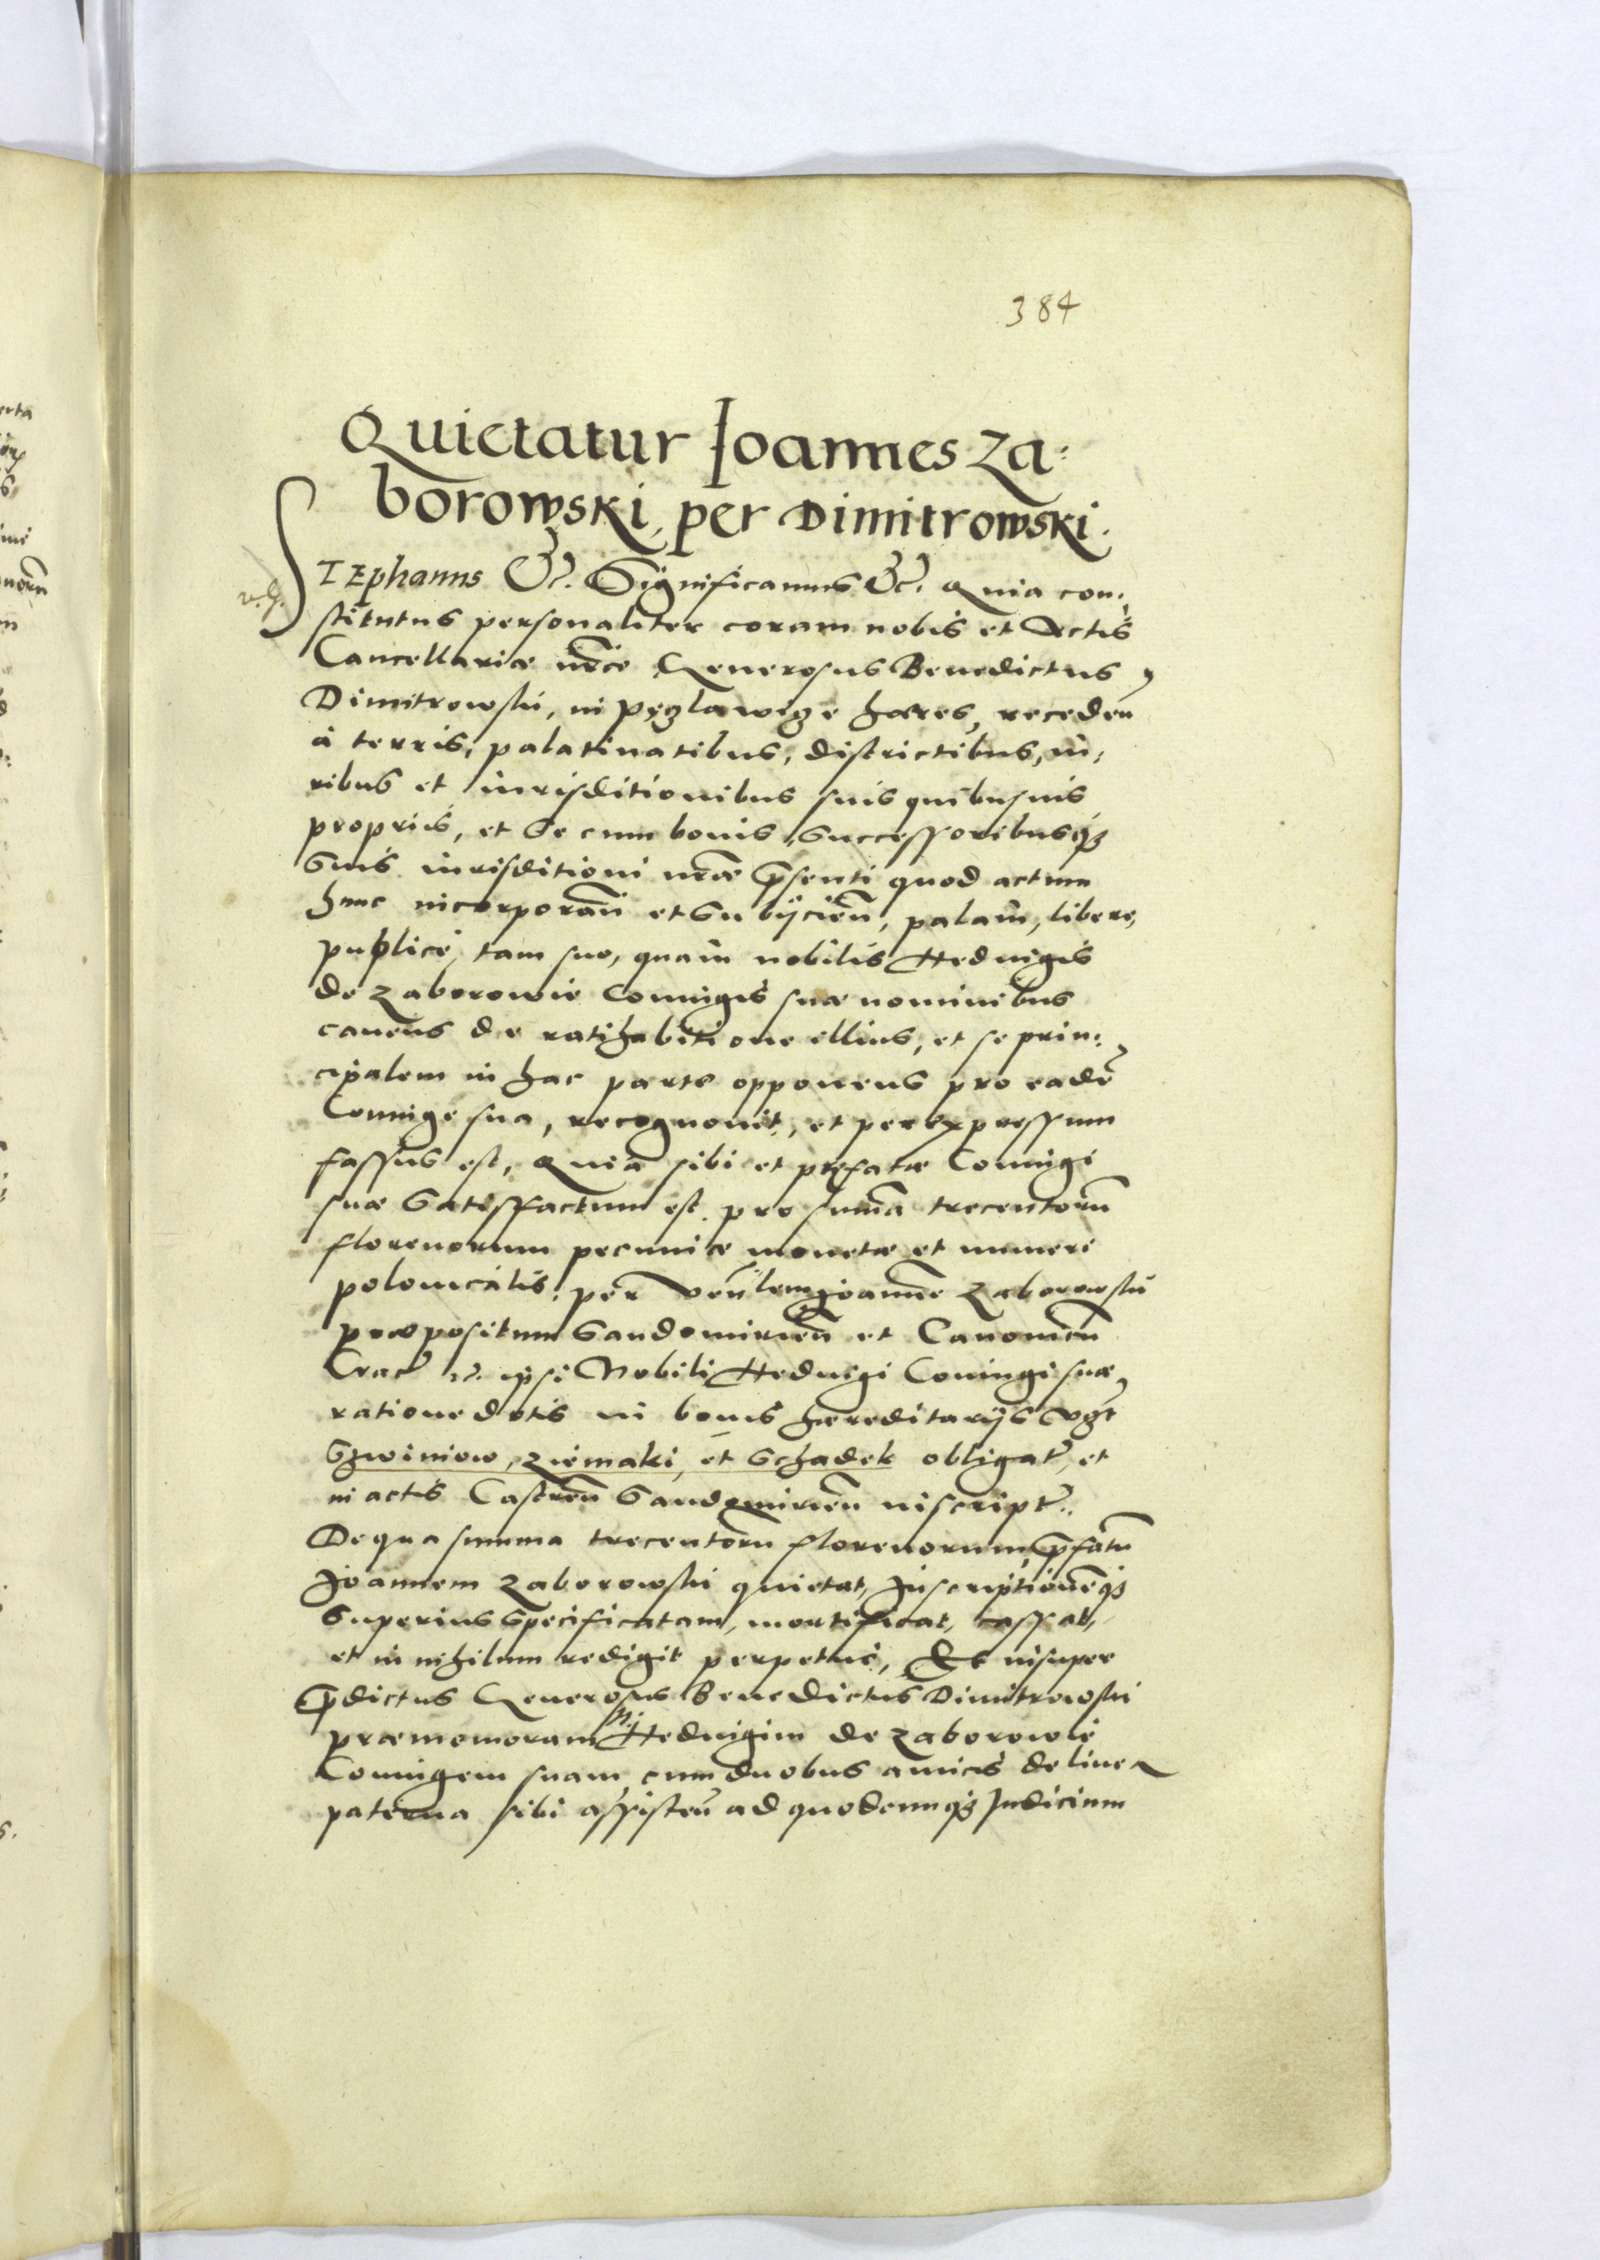 384
Quietatur Ioannes Za:
borowski, per Dimitrowski.
STEphanus &c. Significamus &c. Quia con:
stitutus personaliter coram nobis et Actis
Cancellariæ nræ Generosus Benedictus
Dimitrowski, in hæres, receden
à terris, palatinatibus, districtibus, iu:
ribus et iurisditionibus suis quibusuis
proprijs, et se cum bonis, successoribusq3
suis iurisditioni nræ pñsenti quod actum
hunc incorporañ et subijcień, palàm, libere,
publicè, tam suo, quàm nobilis Heduigis
de Zaborowie Coniugis suæ nominibus
cauens de ratihabitione illius, et se prin:
cipalem in hac parte opponens pro eadē
Coniuge sua, recognouit, et per expressum
fassus est, Quia sibi et præfatæ Coniugi
suæ satisfactum est pro summa trecentorū
florenorum pecuniæ, monetæ et numeri
polonicalis, per Veńlem Joannē Zaborowski
præpositum Sandomirień et Canonicū
Crac ipsi Nobili Heduigi Coniugi suæ
ratione dotis in bonis hæreditarijs vgt
et Schadek obligat, et
in actis Castreń Sandomirień inscript.
De qua summa trecentorū florenorum, pfatū
Joannem Zaborowski quietat, Inscriptionēq3
superius specificatam, mortificat, cassat,
et in nihilum redigit perpetuè, Et insuper
pdictus Generosus Benedictus Dimitrowski
præmemoram Heduigim de Zaborowie
Coniugem suam, cum duobus amicis de linea
paterna sibi assisteń ad quodcunq3 Judicium